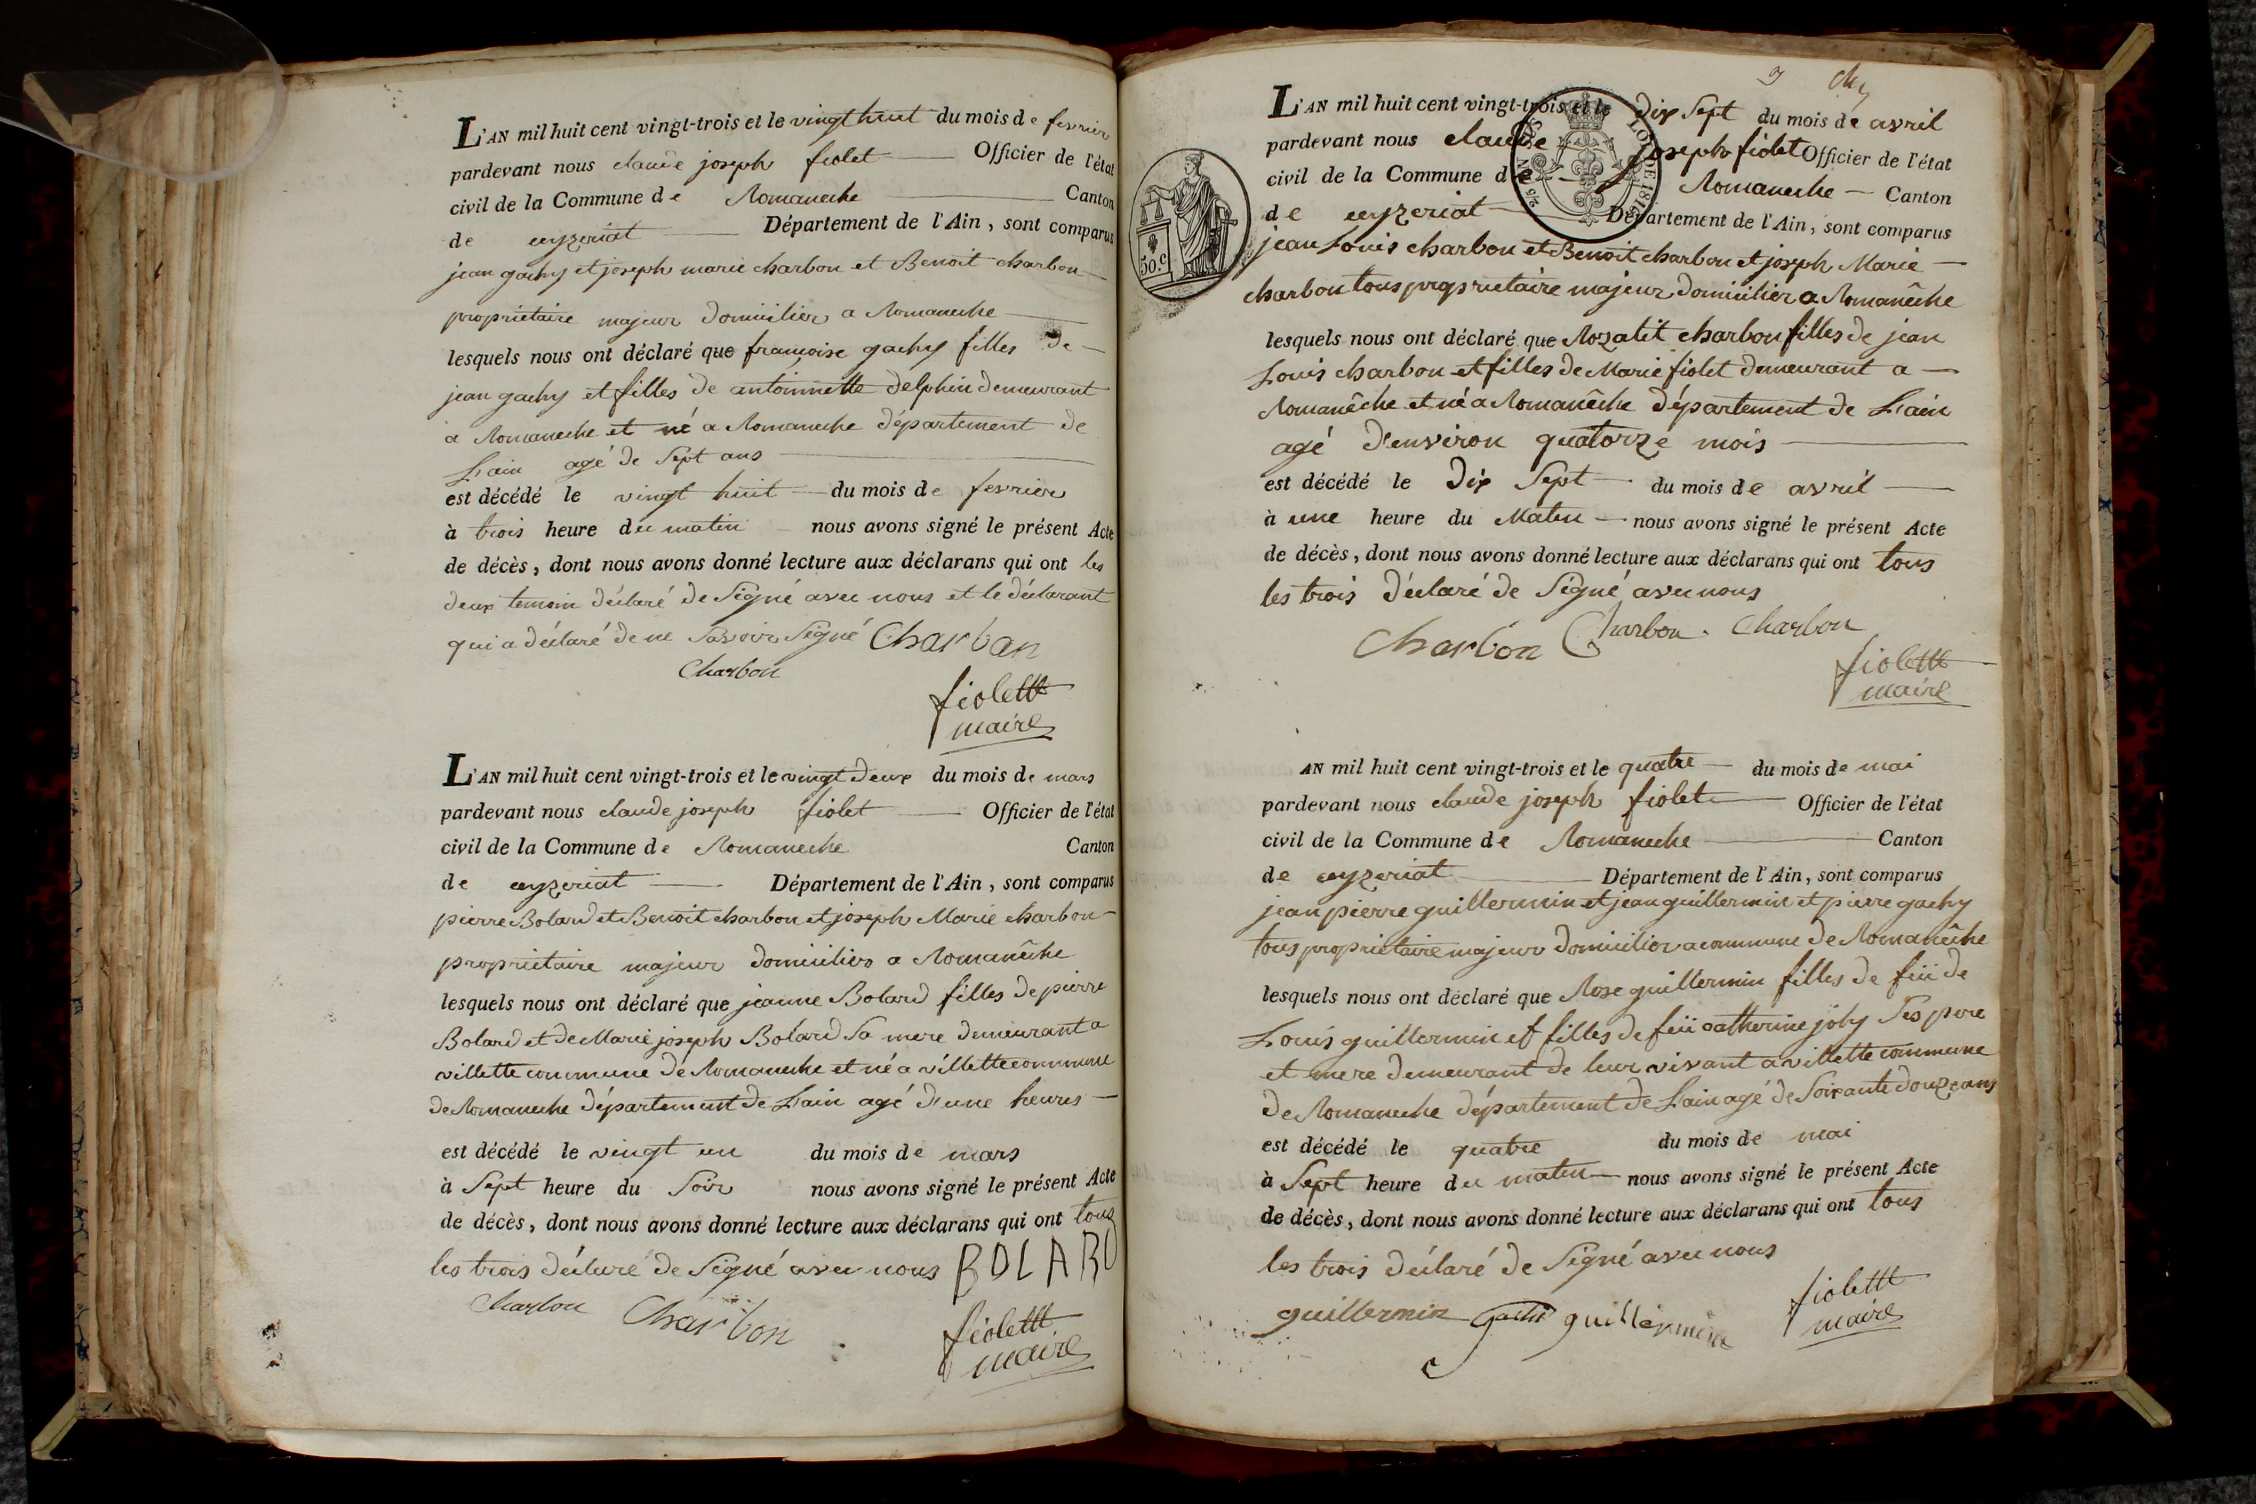 L'AN mil huit cent vingt-trois et le vingt huit du mois de fevrier
pardevant nous claude joseph fiolet Officier de l'état
civil de la Commune de Romaneche Canton
de ceyzeriat Département de l'Ain, sont comparus
jean gachy et joseph marie charbon et Benoit charbon
proprietaire majeur domicilier a Romaneche
lesquels nous ont déclaré que françoise gachy filles de
jean gachy et filles de antoinnette delphin demeurant
a Romaneche et né a Romaneche département de
Lain agé de Sept ans
est décédé le vingt huit du mois de fevrier
à trois heure du matin nous avons signé le présent Acte
de décès, dont nous avons donné lecture aux déclarans qui ont les
deux temoin déclaré de Signé avec nous et le déclarant
qui a déclaré de ne Savoir Signé Charbon
Charbon
fiolettt
maire
L'AN mil huit cent vingt-trois et le vingt deux du mois de mars
pardevant nous claude joseph fiolet Officier de l'état
civil de la Commune de Romaneche Canton
de ceyzeriat Département de l'Ain, sont comparus
pierre Bolard et Benoit charbon et joseph Marie charbon
proprietaire majeur domicilier a Romanêche
lesquels nous ont déclaré que jeanne Bolard filles de pierre
Bolard et de Marie joseph Bolard Sa mere demeurant a
villette commune de Romaneche et né a villette commune
de Romaneche département de Lain agé d'une heures
est décédé le vingt un du mois de mars
à Sept heure du Soir nous avons signé le présent Acte
de décès, dont nous avons donné lecture aux déclarans qui ont tous
les trois déclaré de Signé avec nous BOLARD
Charbon Charbon
fiolettt
maire
9
L'AN mil huit cent vingt-trois et le dix Sept du mois de avril
pardevant nous claude joseph fiolet Officier de l'état
civil de la Commune de Romaneche Canton
de ceyzeriat Département de l'Ain, sont comparus
50.c
jean Louis charbon et Benoit charbon et joseph Marie
charbon tous proprietaire majeur domicilier a Romanêche
lesquels nous ont déclaré que Rozalit charbon filles de jean
Louis charbon et filles de Marie fiolet demeurant a
Romanêche et né a Romanêche département de Lain
agé d'environ quatorze mois
est décédé le dix Sept du mois de avril
à une heure du Matin nous avons signé le présent Acte
de décès, dont nous avons donné lecture aux déclarans qui ont tous
les trois déclaré de Signé avec nous
Charbon Charbon Charbon
fiolettt
maire
AN mil huit cent vingt-trois et le quatre du mois de mai
pardevant nous claude joseph fiolet Officier de l'état
civil de la Commune de Romaneche Canton
de ceyzeriat Département de l'Ain, sont comparus
jean pierre guillermin et jean guillermin et pierre gachy
tous proprietaire majeur domicilier a commune de Romanêche
lesquels nous ont déclaré que Rose guillermin filles de feü de
Louis guillermin et filles de feü catherine joly Ses pere
et mere demeurant de leur vivant a villette commune
de Romaneche département de Lain agé de Soixante douze ans
est décédé le quatre du mois de mai
à Sept heure du matin nous avons signé le présent Acte
de décès, dont nous avons donné lecture aux déclarans qui ont tous
les trois déclaré de Signé avec nous
guillermin gachi guillermin
fiolettt
maire